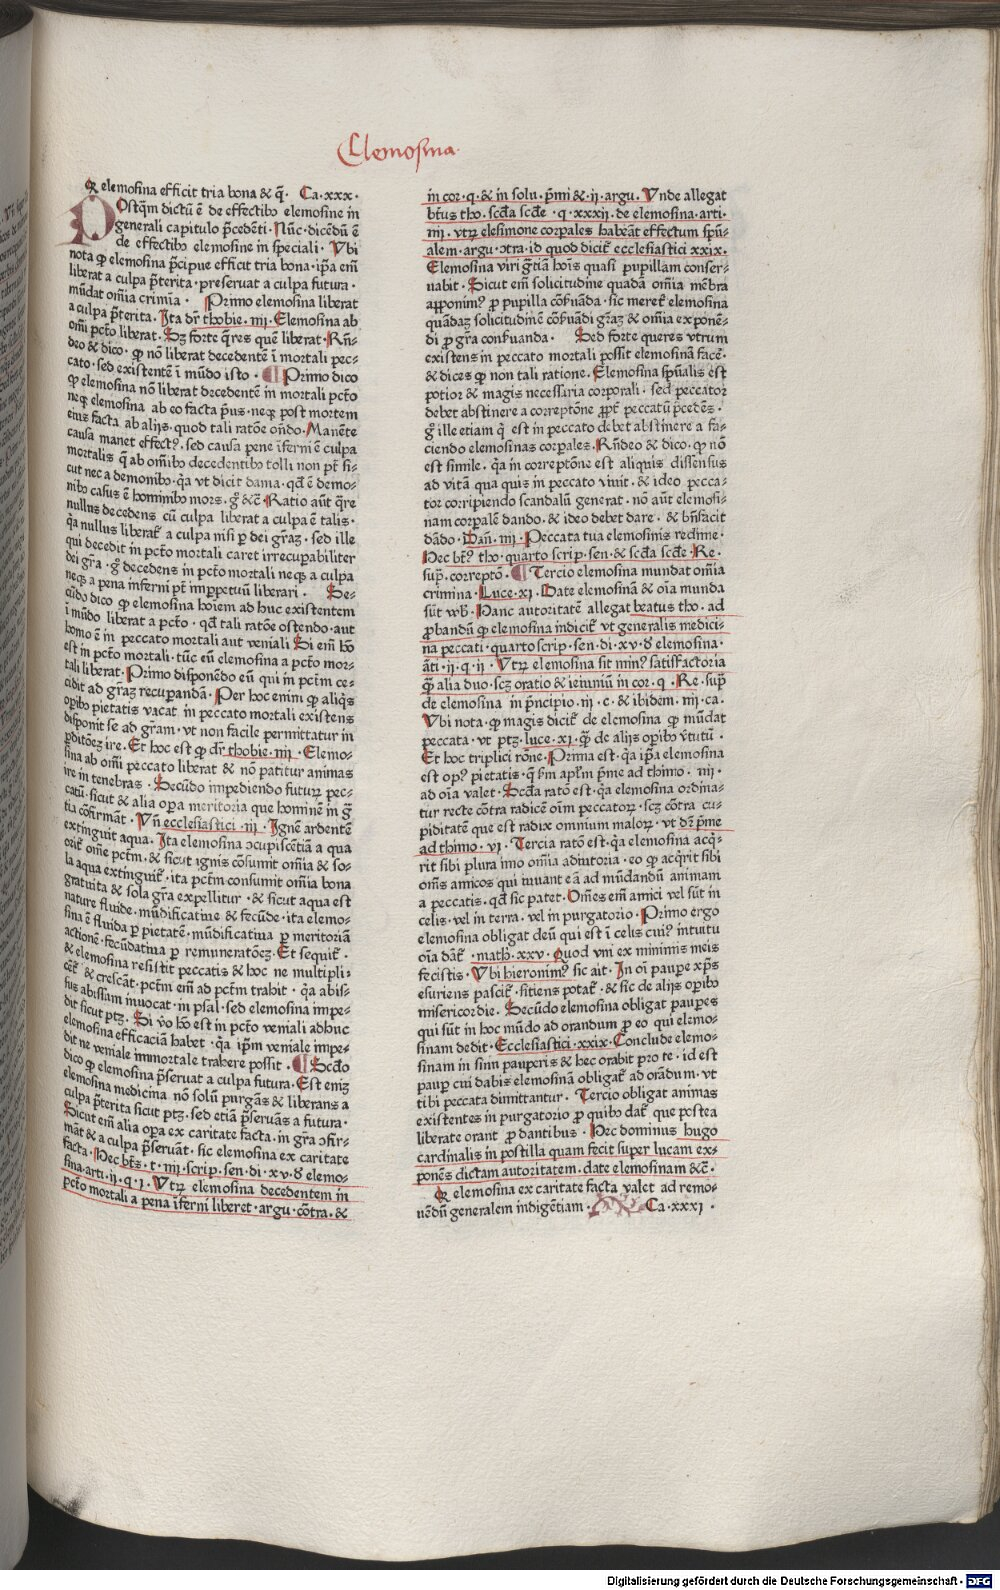 Elemosina.
Q elemosina efficit tria bona & q̄. Ca.xxx.
POstq̄m dictū ē de effectibꝰ elemosine in
generali capitulo p̄cedēti. Nūc dicēdū ē
de effectibꝰ elemosine in speciali. Vbi
nota ꝙ elemosina p̄cipue efficit tria bona. ip̄a em̄
liberat a culpa p̄terita. preseruat a culpa futura.
mūdat om̄ia crimia. Primo elemosina liberat
a culpa p̄terita. Ita dr̄ thobie. iiii. Elemosina ab
om̄i pctō liberat. Sꝫ forte q̄res quē liberat. Rn̄-
deo & dico. ꝙ nō liberat decedentē ī mortali pec-
cato. sed existentē ī mūdo isto. Primo dico
ꝙ elemosina nō liberat decedentē in mortali pctō
neqꝫ elemosina ab eo facta p̄us. neqꝫ post mortem
eius facta ab alijs. quod tali ratōe on̄do. Manēte
causa manet effectꝰ. sed causa pene īferni ē culpa
mortalis q̄ ab om̄ibꝰ decedentibꝰ tolli non pt̄ si-
cut nec a demonibꝰ. q̄a vt dicit dama. qd̄ ē demo-
nibꝰ casus ē hominibꝰ mors. gͦ &c̄. Ratio aūt q̄re
nullus decedens cū culpa liberat a culpa ē talis.
q̄a nullus liberat̄ a culpa nisi ꝑ dei gr̄aꝫ. sed ille
qui decedit in pctō mortali caret irrecuꝑabiliter
dei gr̄a. gͦ decedens in pctō mortali neqꝫ a culpa
neqꝫ a pena inferni pt̄ imꝑpetuū liberari. Se-
cūdo dico ꝙ elemosina hoīem ad huc existentem
ī mūdo liberat a pctō. qd̄ tali ratōe ostendo. aut
homo ē in peccato mortali aut veniali Si em̄ hō
est in pctō mortali. tūc eū elemosina a pctō mor-
tali liberat. Primo disponēdo eū qui in pctm̄ ce-
cidit ad gr̄aꝫ recuꝑandā. Per hoc enim ꝙ aliq̄s
oꝑibꝰ pietatis vacat in peccato mortali existens
disponit se ad gr̄am. vt non facile permittatur in
ꝑditōeꝫ ire. Et hoc est ꝙ dr̄ thobie. iiii. Elemo-
sina ab om̄i peccato liberat & nō patitur animas
ire in tenebras. Secūdo impediendo futurꝝ pec-
catū. sicut & alia oꝑa meritoria que hominē in gr̄
tia cōfirmāt. Vn̄ ecclesiastici. iii. Ignē ardentē
extinguit aqua. Ita elemosina ↄcupiscētiā a qua
orit̄ om̄e pctm̄. & sicut ignis cōsumit om̄ia & so-
la aqua extinguit̄. ita pctm̄ consumit om̄ia bona
gratuita & sola gr̄a expellitur. & sicut aqua est
nature fluide. mūdificatiue & fecūde. ita elemo-
sina ē fluida ꝑ pietatē. mūdificatiua ꝑ meritoriā
actionē. fecūdatiua ꝑ remuneratōeꝫ. Et sequit̄.
& elemosina resistit peccatis & hoc ne multipli-
cēt̄ & crescāt. pctm̄ em̄ ad pctm̄ trahit. q̄a abis-
sus abissam inuocat. in psal. sed elemosina impe-
dit sicut ptꝫ. Si vo hō est in pctō veniali adhuc
elemosina efficaciā habet. qa ip̄m veniale impe-
dit ne veniale immortale trahere possit. Scd̄o
dico ꝙ elemosina p̄seruat a culpa futura. Est enīꝫ
elemosina medicina nō solū purgās & liberans a
culpa p̄terita sicut ptꝫ. sed etiā p̄seruās a futura.
Sicut em̄ alia oꝑa ex caritate facta. in gr̄a ↄfir-
māt & a culpa p̄seruāt. sic elemosina ex caritate
facta. Hec bt̄s. t. iiii. scrip. sen. di. xv. đ elemo-
sina. arti. ii. q. i. Vtrꝝ elemosina decedentem in
pctō mortali a pena īferni liberet. argu. cōtra. &
in cor. q. & in solu. p̄mi &. ii. argu. Vnde allegat
bt̄us tho. scd̄a scd̄e. q. xxxii. de elemosina. arti.
iiii. vtrꝝ elesimone corꝑales habeāt effectum spū-
alem. argu. ↄtra. id quod dicit̄ ecclesiastici xxix.
Elemosina viri gr̄tiā hoīs quasi pupillam conser-
uabit. Sicut em̄ solicitudine quadā om̄ia mēbra
apponimꝰ ꝓ pupilla cōẜuanda. sic meret̄ elemosina
quādaꝫ solicitudinē cōẜuādi gr̄aꝫ & om̄ia exponē-
di ꝓ gr̄a conẜuanda. Sed forte queres vtrum
existens in peccato mortali possit elemosinā facē̄.
& dices ꝙ non tali ratione. Elemosina spūalis est
potior & magis necessaria corporali. sed peccator
debet abstinere a correptōne ꝓpt̄ peccatū p̄cedēs.
gͦ ille etiam q̄ est in peccato debet abstinere a fa-
ciendo elemosinas corꝑales. Rn̄deo & dico. ꝙ nō
est simile. q̄a in correptōne est aliquis dissensus
ad vitā qua quis in peccato viuit. & ideo pecca-
tor corripiendo scandalū generat. nō aūt elemosi-
nam corꝑalē dando. & ideo debet dare. & bn̄facit
dādo. Dan̄. iiii. Peccata tua elemosinis redime.
Hec bt̄ꝰ tho. quarto scrip. sen. & scd̄a scd̄e. Re.
suꝓ. correptō. Tercio elemosina mundat om̄ia
crimina. Luce. xi. Date elemosinā & oīa munda
sūt vob̄. Hanc autoritatē allegat beatus tho. ad
ꝓbandū ꝙ elemosina indicit̄ vt generalis medici-
na peccati. quarto scrip. sen. di. xv. đ elemosina.
āti. ii. q. ii. Vtrꝝ elemosina sit minꝰ satisfactoria
q̄ꝫ alia duo. scꝫ oratio & ieiuniū in cor. q. Re. suꝓ
de elemosina in p̄ncipio. iii. c. & ibidem. iiii. ca.
Vbi nota. ꝙ magis dicit̄ de elemosina ꝙ mūdat
peccata. vt ptꝫ. luce. xi. q̄ꝫ de alijs oꝑibꝰ v̄tutū.
Et hoc triplici rōne. Prima est. q̄a ip̄a elemosina
est opꝰ pietatis. q̄ ẜm apl̄m p̄me ad thimo. iiii.
ad oīa valet. Scd̄a ratō est. q̄a elemosina ordina-
tur recte cōtra radicē oīm peccatoꝝ. scꝫ cōtra cu-
piditatē que est radix omnium maloꝝ. vt dr̄ p̄me
ad thimo. vi. Tercia ratō est. q̄a elemosina acq̄-
rit sibi plura imo om̄ia adiutoria. eo ꝙ acq̄rit sibi
om̄s amicos qui iuuant eā ad mūdandū animam
a peccatis. qd̄ sic patet. Om̄es em̄ amici vel sūt in
celis. vel in terra. vel in purgatorio. Primo ergo
elemosina obligat deū qui est ī celis cuiꝰ intuitu
oīa dāt̄. math̄. xxv. Quod vni ex minimis meis
fecistis. Vbi hieronimꝰ sic ait. In oī pauꝑe xp̄s
esuriens pascit̄. sitiens potat̄. & sic de alijs oꝑibꝰ
misericordie. Secūdo elemosina obligat pauꝑes
qui sūt in hoc mūdo ad orandum ꝓ eo qui elemo-
sinam dedit. Ecclesiastici. xxix. Conclude elemo-
sinam in sinu pauꝑis & hec orabit pro te. id est
pauꝑ cui dabis elemosinā obligat̄ ad orādum. vt
tibi peccata dimittantur. Tercio obligat animas
existentes in purgatorio ꝓ quibꝰ dat̄ que postea
liberate orant ꝓ dantibus. Hec dominus hugo
cardinalis in postilla quam fecit super lucam ex-
ponēs dictam autoritatem. date elemosinam &c̄.
Q elemosina ex caritate facta valet ad remo-
uēdū generalem indigētiam. Ca. xxxi.
Digitalisierung gefördert durch die Deutsche Forschungsgemeinschaft - DFG